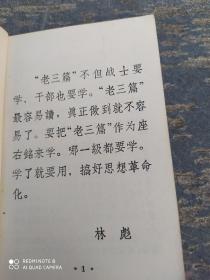 “老三篇”不但战士要
学，干部也要学。“老三篇”
最容易读，真正做到就不容
易了。要把“老三篇”作为座
右铭来学。哪一级都要学。
学了就要用，搞好思想革命
化。
林彪
·1·
REDMI NOTE 8
AI QUAD CAMERA